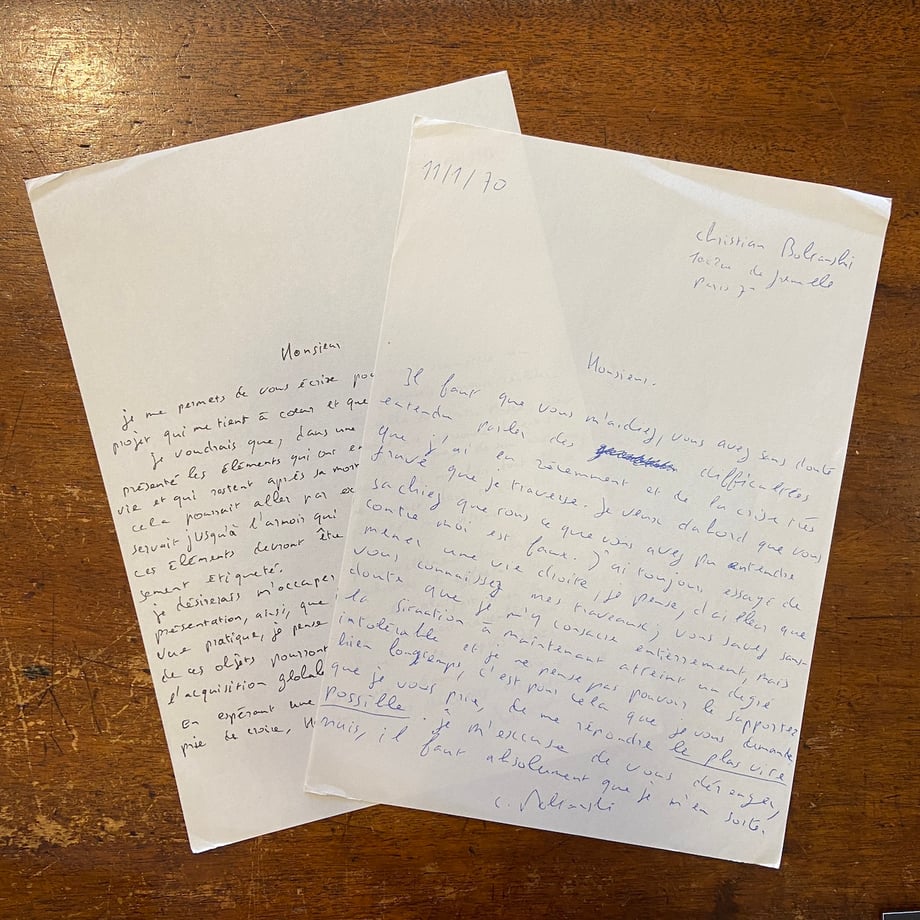 Monsieur
je me permets de vous écrire pou
projet qui me tient à cœur et que
je voudrais que, dans une
présenté les éléments qui ont en
vie et qui restent après sa mort
cela pourrait aller par ex
servait jusqu'à l'armoir qui
ces Eléments devront être
sement étiqueté.
je désirerais m'occuper
présentation, ainsi, que
vue pratique, je pense
de ces objets pourront
l'acquisition global
En espérant une
prie de croire,
11/1/70
Christian Boltanski
rue de grenelle
Paris 7
Monsieur.
Il faut que vous m'aidiez, vous avez sans doute
entendu parler des difficultées
que j'ai eu récemment et de la crise très
grave que je traverse. Je veux dabord que vous
sachiez que tous ce que vous avez pu entendre
contre moi est faux. J'ai toujours essayé de
mener une vie droite, je pense, d'ailleur que
vous connaissez mes traveaux; vous savez sans
doute que je m'y consacre entièrement, mais
la situation à maintenant atteint un degré
intolérable et je ne pense pas pouvoir le supporter
bien longtemps, c'est pour cela que je vous demande,
que je vous prie, de me répondre le plus vite
possible. Je m'excuse de vous déranger,
mais, il faut absolument que je m'en sorte.
C. Boltanski